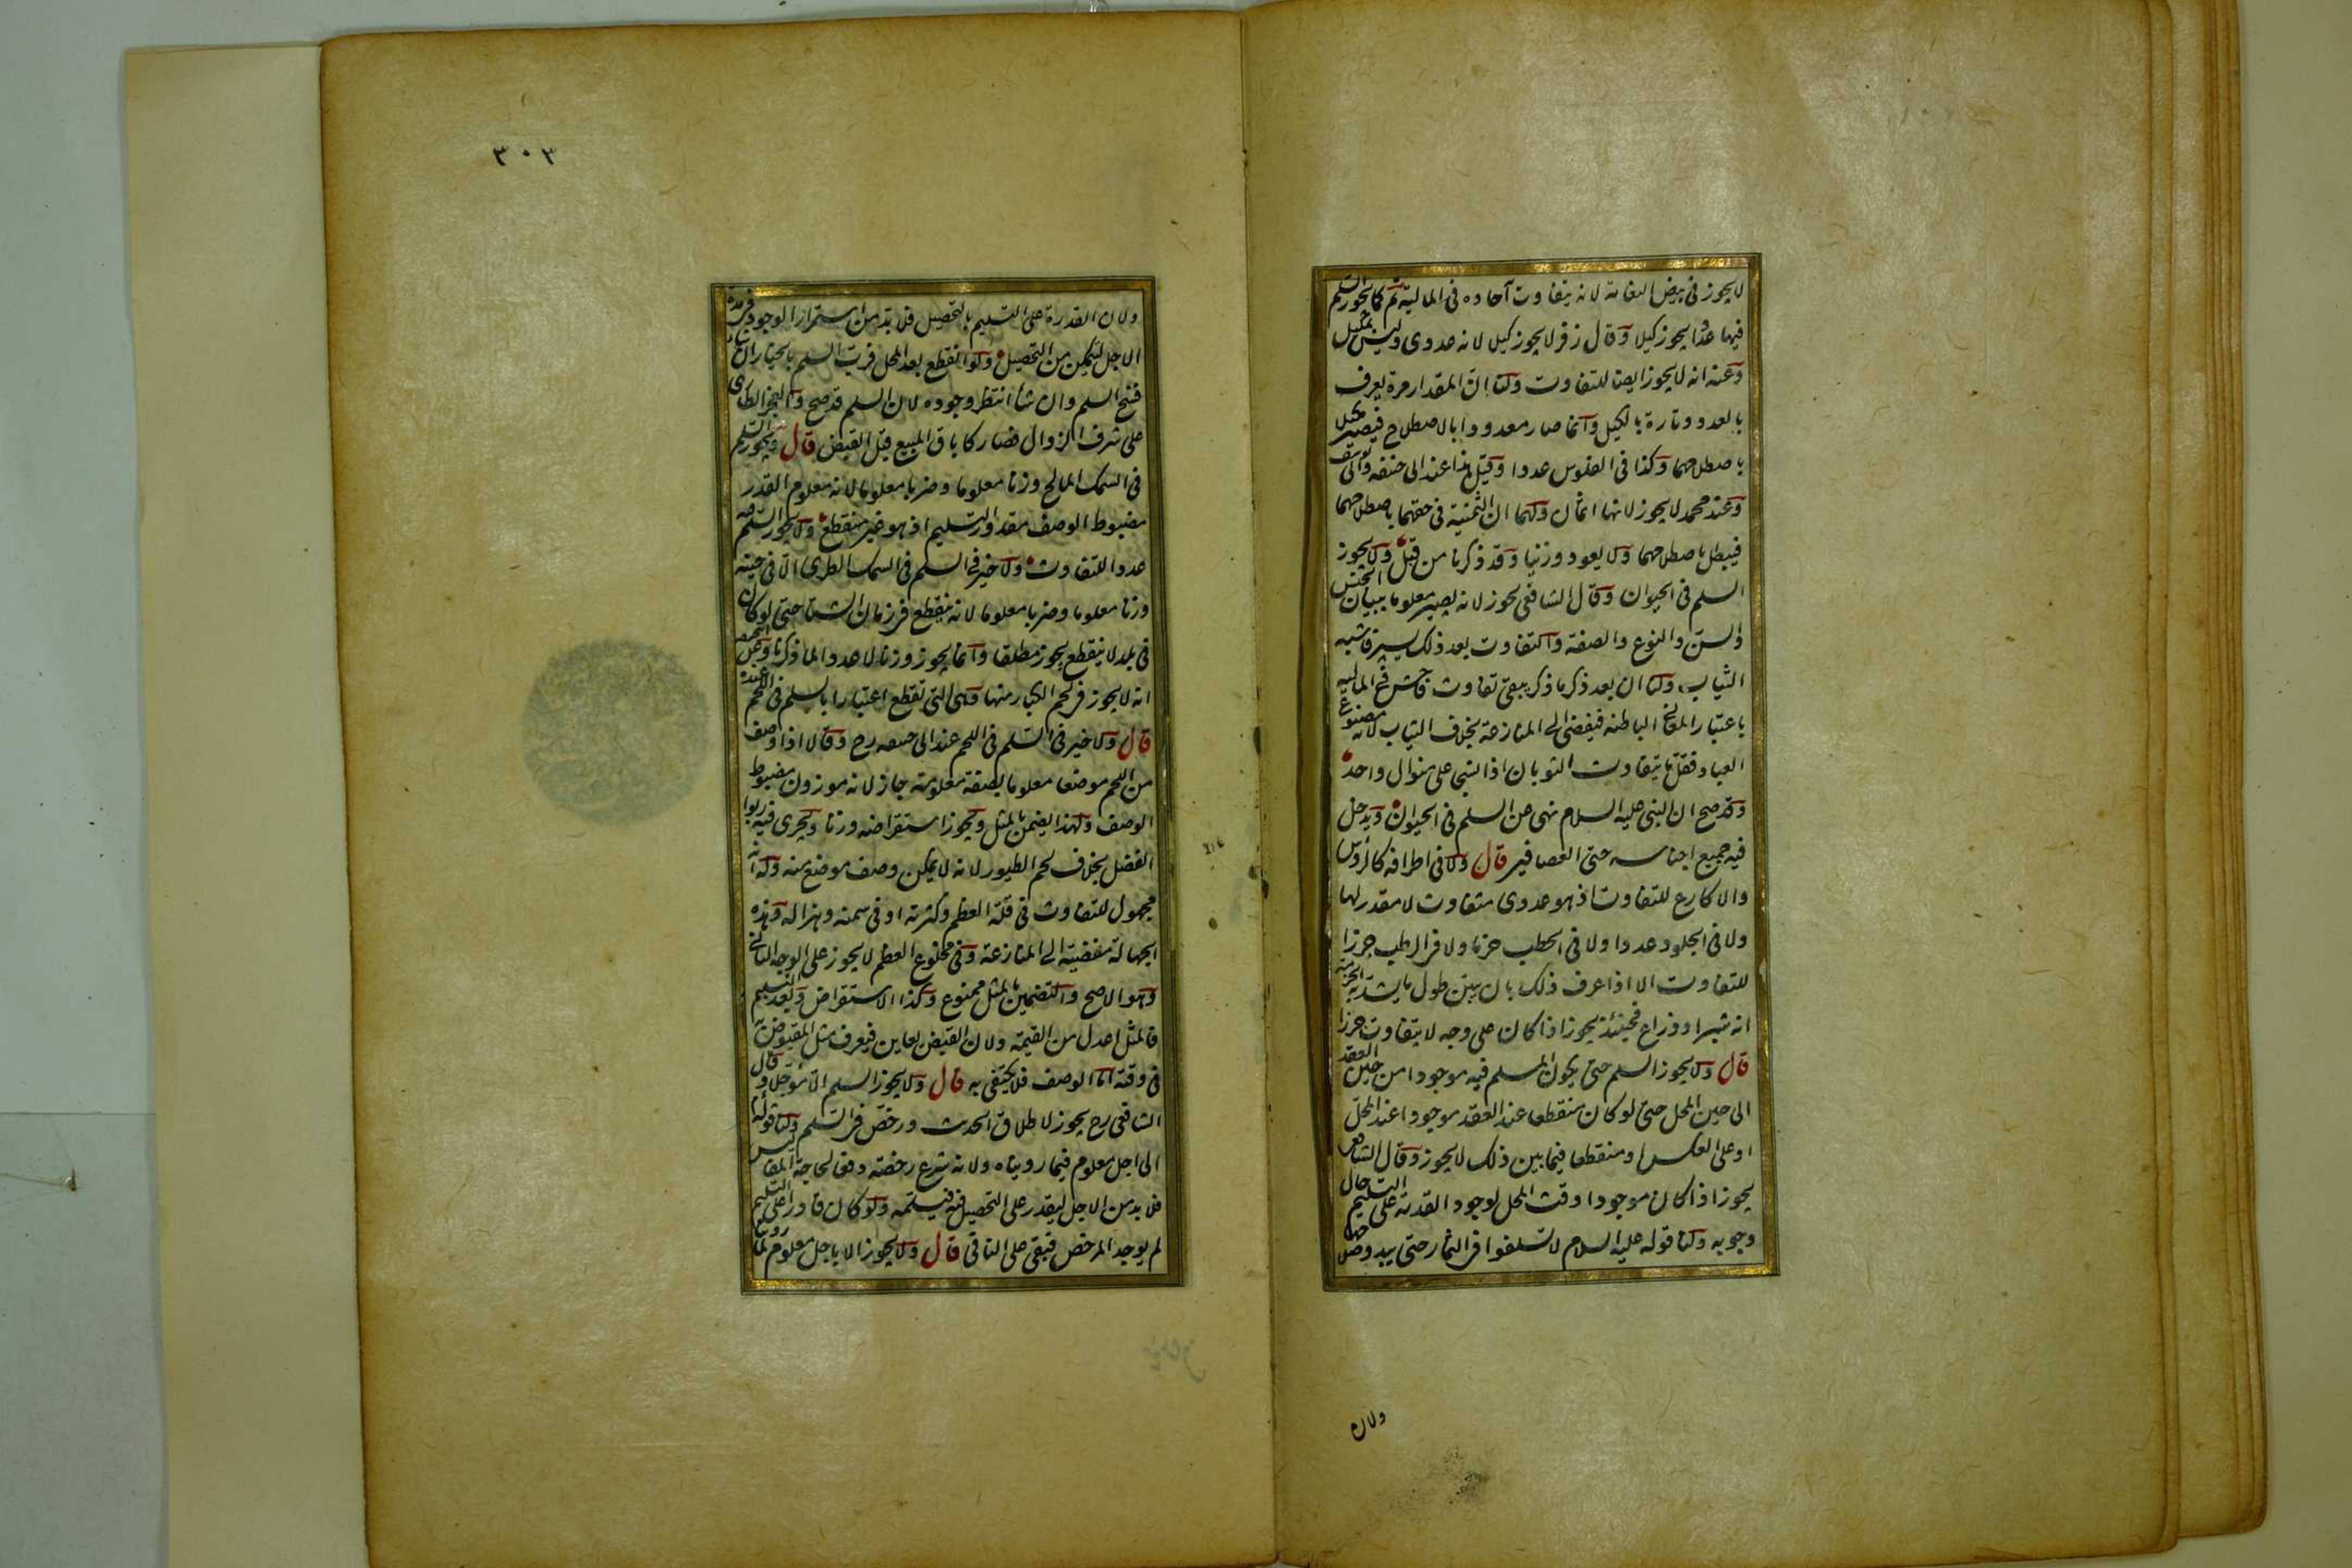 لا يجوز فى بيض النعامة لانه يتفاوت آحاده فى المالية ثم كما يجوز السلم
فيها عددا يجوز كيلا وقال زفر لا يجوز كيلا لانه عددى وليس بمكيل
وعنه انه لا يجوز ايضا للتفاوت ولنا ان المقدار مرة يعرف
بالعدد وتارة بالكيل وانما صار معدودا بالاصطلاح فيصير مكيلا
باصطلاحهما وكذا فى الفلوس عددا وقيل هذا عند ابى حنيفه وابى يوسف
وعند محمد لا يجوز لانها اثمان ولهما ان الثمنية فى حقهما باصطلاحهما
فيبطل باصطلاحهما ولا يعود وزنيا وقد ذكرنا من قبل ولا يجوز
السلم فى الحيوان وقال الشافعى يجوز لانه يصير معلوما ببيان الجنس
والسن والنوع والصفة والتفاوت بعد ذلك يسير فاشبه
الثياب ولنا ان بعد ذكر ما ذكر يبقى تفاوت فاحش فى المالية
باعتبار المعانى الباطنه فيفضى الى المنازعة بخلاف الثياب لانه مصنوع
العباد فقلما يتفاوت الثوبان اذا نسجا على منوال واحد
وقد صح ان النبى عليه السلام نهى عن السلم فى الحيوان ويدخل
فيه جميع اجناسه حتى العصافير قال ولا فى اطرافه كالرؤس
والاكارع للتفاوت اذ هو عددى متفاوت لا مقدر لها
ولا فى الجلود عددا ولا فى الحطب حزما ولا فى الرطب جرزا
للتفاوت الا اذا عرف ذلك بان يبين طول ما يشد به الحزمة
انه شبر او ذراع فحينئذ يجوز اذا كان على وجه لا يتفاوت جرزا
قال ولا يجوز السلم حتى يكون المسلم فيه موجودا من حين العقد
الى حين المحل حتى لو كان منقطعا عند العقد موجودا عند المحل
او على العكس او منقطعا فيما بين ذلك لا يجوز وقال الشافعى
يجوز اذا كان موجودا وقت المحل لوجود القدرة على التسليم حال
وجوبه ولنا قوله عليه السلام لا تسلفوا فى الثمار حتى يبدو صلاحها
ولان
٣٠٣
ولان القدرة على التسليم بالتحصيل فلا بد من استمرار الوجود فى مدة
الاجل ليتمكن من التحصيل ولو انقطع بعد المحل فرب السلم بالخيار ان شاء
فسخ السلم وان شاء انتظر وجوده لان السلم قد صح والعجز الطارى
على شرف الزوال فصار كاباق المبيع قبل القبض قال ويجوز السلم
فى السمك المالح وزنا معلوما وضربا معلوما لانه معلوم القدر
مضبوط الوصف مقدور التسليم اذ هو غير منقطع ولا يجوز السلم فيه
عددا للتفاوت ولا خير فى السلم فى السمك الطرى الا فى حينه
وزنا معلوما وضربا معلوما لانه ينقطع فى زمان الشتا حتى لو كان
فى بلد لا ينقطع يجوز مطلقا وانما يجوز وزنا لا عددا لما ذكرنا وعن ابى حنيفه
انه لا يجوز فى لحم الكبار منها وهى التى تقطع اعتبارا بالسلم فى اللحم عنده
قال ولا خير فى السلم فى اللحم عند ابى حنيفه رح وقالا اذا وصف
من اللحم موضعا معلوما بصفة معلومة جاز لانه موزون مضبوط
الوصف ولهذا يضمن بالمثل ويجوز استقراضه وزنا ويجرى فيه ربوا
الفضل بخلاف لحم الطيور لانه لا يمكن وصف موضع منه وله انه
مجهول للتفاوت فى قلة العظم وكثرته او فى سمنه وهزاله وهذه
الجهالة مفضية الى المنازعة وفى مخلوع العظم لا يجوز على الوجه الثانى
وهو الاصح والتضمين بالمثل ممنوع وكذا الاستقراض وبعد التسليم
فالمثل اعدل من القيمة ولان القبض يعاين فيعرف مثل المقبوض به
فى وقته اما الوصف فلا يكتفى به قال ولا يجوز السلم الا مؤجلا وقال
الشافعى رح يجوز لاطلاق الحديث ورخص فى السلم ولنا قوله
الى اجل معلوم فيما روينا ولانه شرع رخصة دفعا لحاجة المفاليس
فلا بد من الاجل ليقدر على التحصيل فيه فيسلمه ولو كان قادرا على التسليم
لم يوجد المرخص فبقى على النافى قال ولا يجوز الا باجل معلوم لما روينا